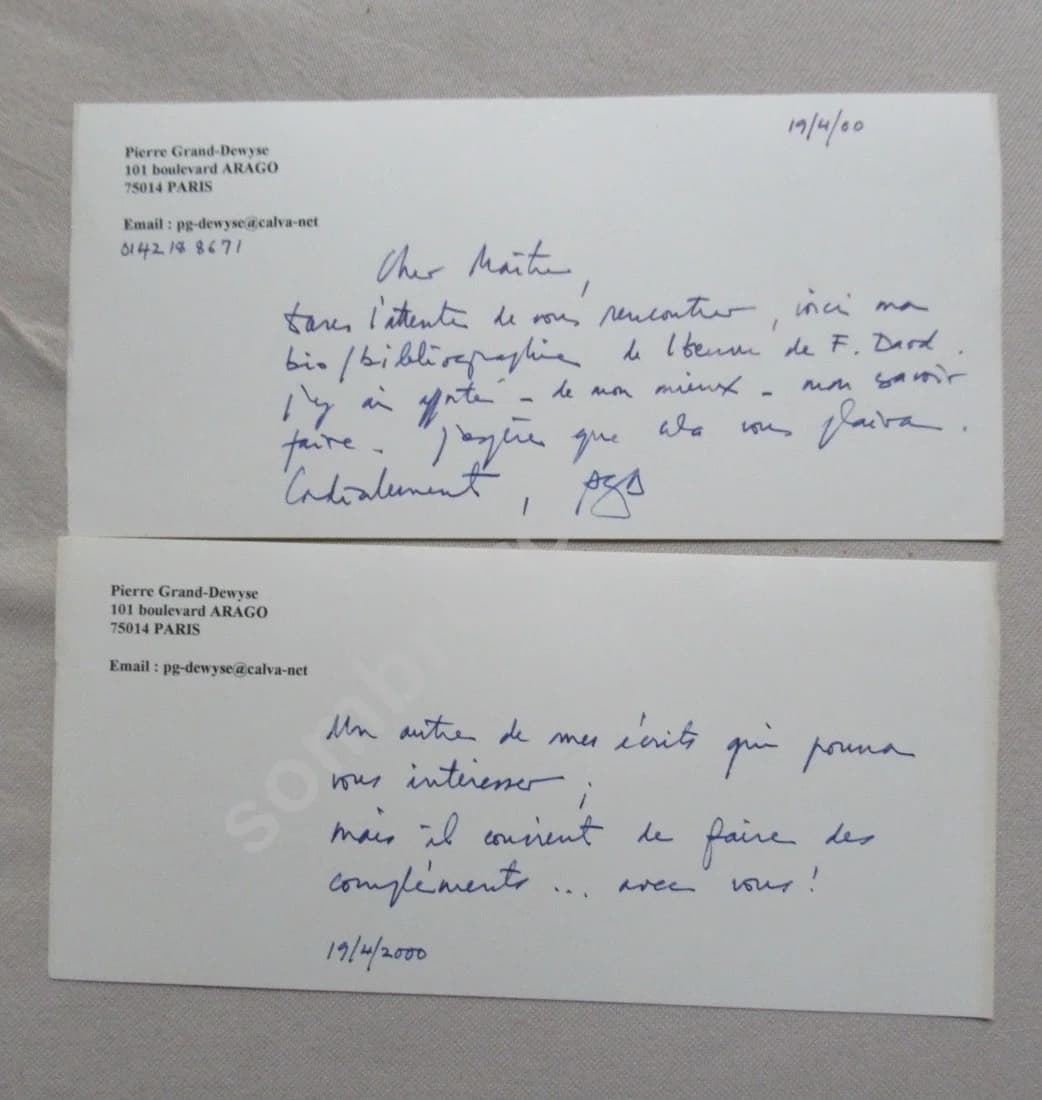 19/4/00
Pierre Grand-Dewyse
101 boulevard ARAGO
75014 PARIS
Email : pg-dewyse@calva-net
0142 18 8671
Cher Maître,
dans l'attente de vous rencontrer, voici ma
bio/bibliographie de l'œuvre de F. Dard.
J'y ai apporté - de mon mieux - mon savoir
faire - J'espère que cela vous plaira.
Cordialement, PGD
Pierre Grand-Dewyse
101 boulevard ARAGO
75014 PARIS
Email : pg-dewyse@calva-net
Un autre de mes écrits qui pourra
vous intéresser ;
mais il convient de faire des
compléments ... avec vous !
19/4/2000